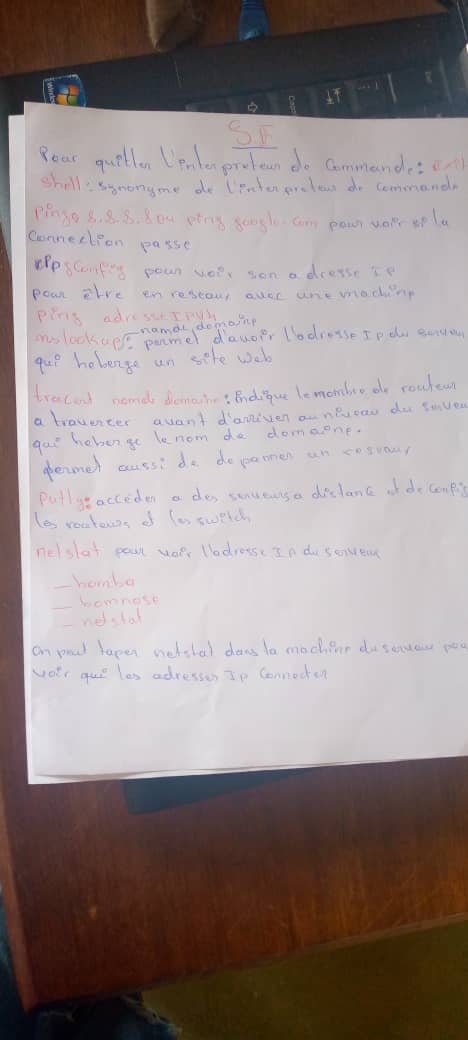 S.E
Pour quitter l'interpreteur de Commande: Exit
Shell: synonyme de l'interpreteur de commande
Ping 8.8.8.8 ou ping google.com pour voir si la
Connection passe
ipconfig pour voir son adresse IP
pour être en reseau avec une machine
Ping adresse IPV4
nslookup nom de domaine: permet d'avoir l'adresse Ip du serveur
qui heberge un site web
tracert nom de domaine: Indique le nombre de routeur
a traverser avant d'arriver au niveau du serveur
qui heberge le nom de domaine.
permet aussi de depanner un reseau
Putty: accéder a des serveurs a distance et de config
les routeurs et les switch
netstat pour voir l'adresse Ip du serveur
— homba
— homnose
— netstat
on peut taper netstat dans la machine du serveur pou
voir qui les adresses Ip Connecter